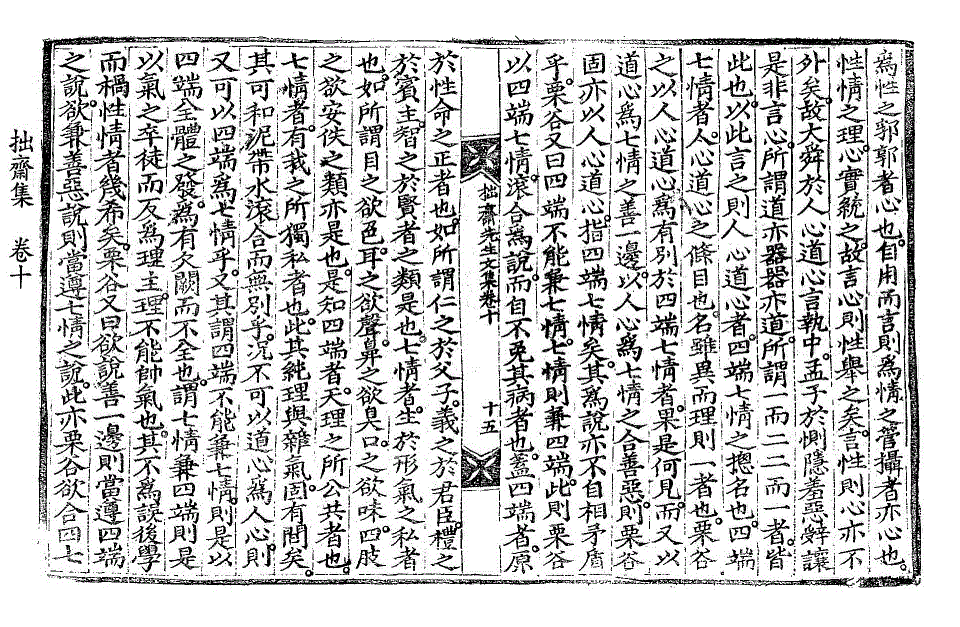 爲性之郛郭者心也自用而言則爲情之管攝者亦心也
性情之理心實統之故言心則性擧之矣言性則心亦不
外矣故大舜於人心道心言執中孟子於惻隱羞惡辭讓
是非言心所謂道亦器器亦道所謂一而二二而一者皆
此也以此言之則人心道心者四端七情之摠名也四端
七情者人心道心之條目也名雖異而理則一者也栗谷
之以人心道心爲有別於四端七情者果是何見而又以
道心爲七情之善一邊以人心爲七情之合善惡則栗谷
固亦以人心道心指四端七情矣其爲說亦不自相矛盾
乎栗谷又曰四端不能兼七情七情則兼四端此則栗谷
以四端七情滾合爲說而自不免其病者也蓋四端者原
拙齋先生文集卷十
十五
於性命之正者也如所謂仁之於父子義之於君臣禮之
於賓主智之於賢者之類是也七情者生於形氣之私者
也如所謂目之欲色耳之欲聲鼻之欲臭口之欲味四肢
之欲安佚之類亦是也是知四端者天理之所公共者也
七情者有我之所獨私者也此其純理與雜氣固有間矣
其可和泥帶水滾合而無別乎況不可以道心爲人心則
又可以四端爲七情乎又其謂四端不能兼七情則是以
四端全體之發爲有欠闕而不全也謂七情兼四端則是
以氣之卒徒而反爲理主理不能帥氣也其不爲誤後學
而楇性情者幾希矣栗谷又曰欲說善一邊則當遵四端
之說欲兼善惡說則當遵七情之說此亦栗谷欲合四七
拙齋集 卷十